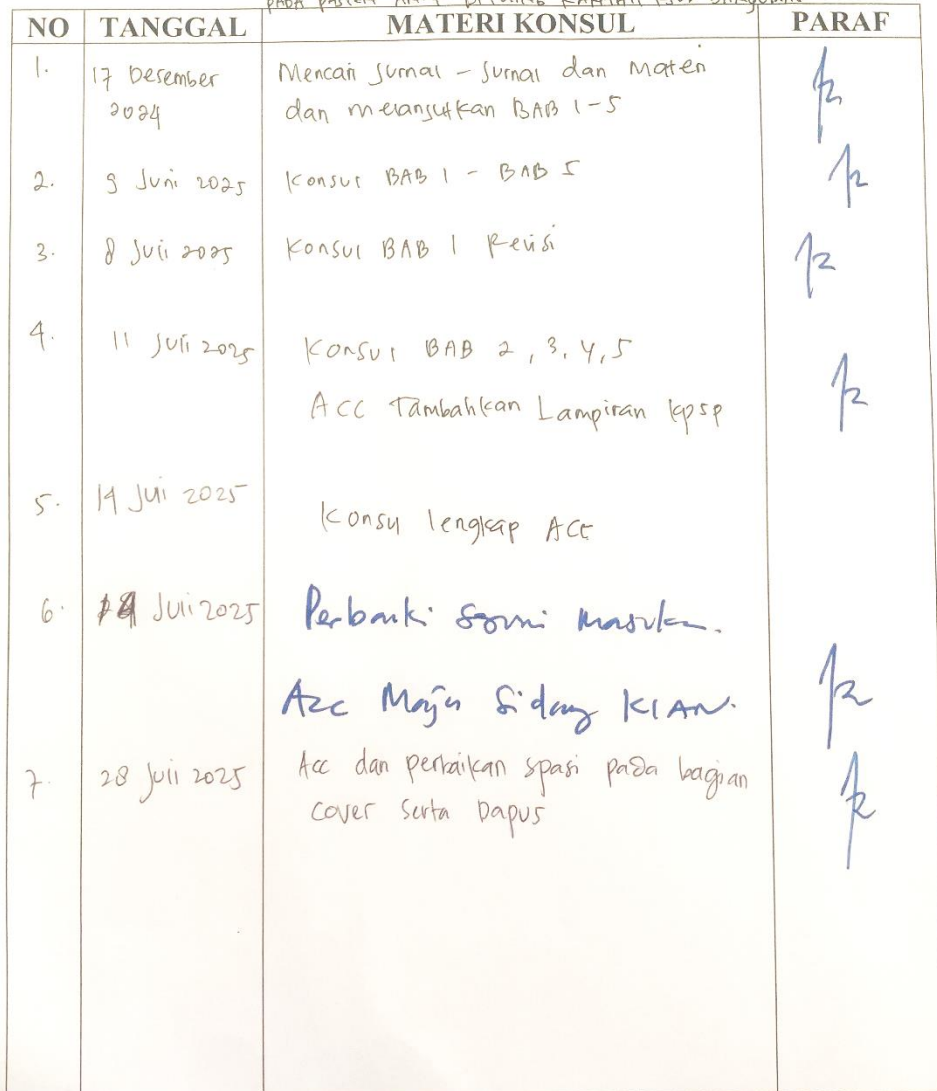 NO TANGGAL MATERI KONSUL PARAF
1. 17 Desember 2024 Mencari Jurnal - Jurnal dan Materi
dan melanjutkan BAB 1-5
2. 9 Juni 2025 Konsul BAB 1 - BAB 5
3. 8 Juli 2025 Konsul BAB 1 Revisi
4. 11 Juli 2025 Konsul BAB 2, 3, 4, 5
ACC Tambahkan Lampiran kpsp
5. 14 Juli 2025 Konsul lengkap Acc
6. Juli 2025 Perbaiki sesuai masukan.
Acc Maju Sidang KIAN.
7. 28 Juli 2025 Acc dan perbaikan spasi pada bagian
cover serta Dapus